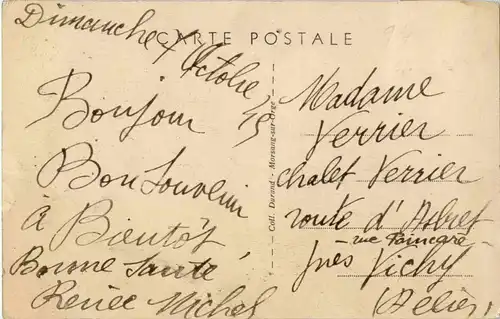 CARTE POSTALE
Dimanche 7 Octobre
Bonjour
Bon Souvenir
à Bientôt
Bonne Santé
Renée Michel
Coll. Durand - Morsang-sur-Orge
Madame
Verrier
chalet Verrier
route d'
- rue
près Vichy
(Allier)